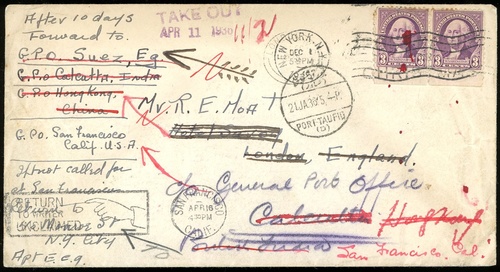 After 10 days
Forward to.
G.P.O Suez, Eg
G.P.O Calcutta, India
G.P.O Hong Kong,
China
G.P.O. San Francisco
Calif. U.S.A.
If not called for
at San Francisco
Return to
RETURN
TO WRITER
UNCLAIMED
St
N.Y. City
Apt E.C.9.
TAKE OUT
APR 11 1936
11/2
NEW YORK, N.Y.
DEC
PM
3
3
21 JA 36
PORT TAUFIQ
Mr. R. E. Moatt
London, England.
c/o General Post Office
Calcutta
Hong Kong
India
San Francisco, Cal.
SAN FRANCISCO
APR 16
PM
CALIF.